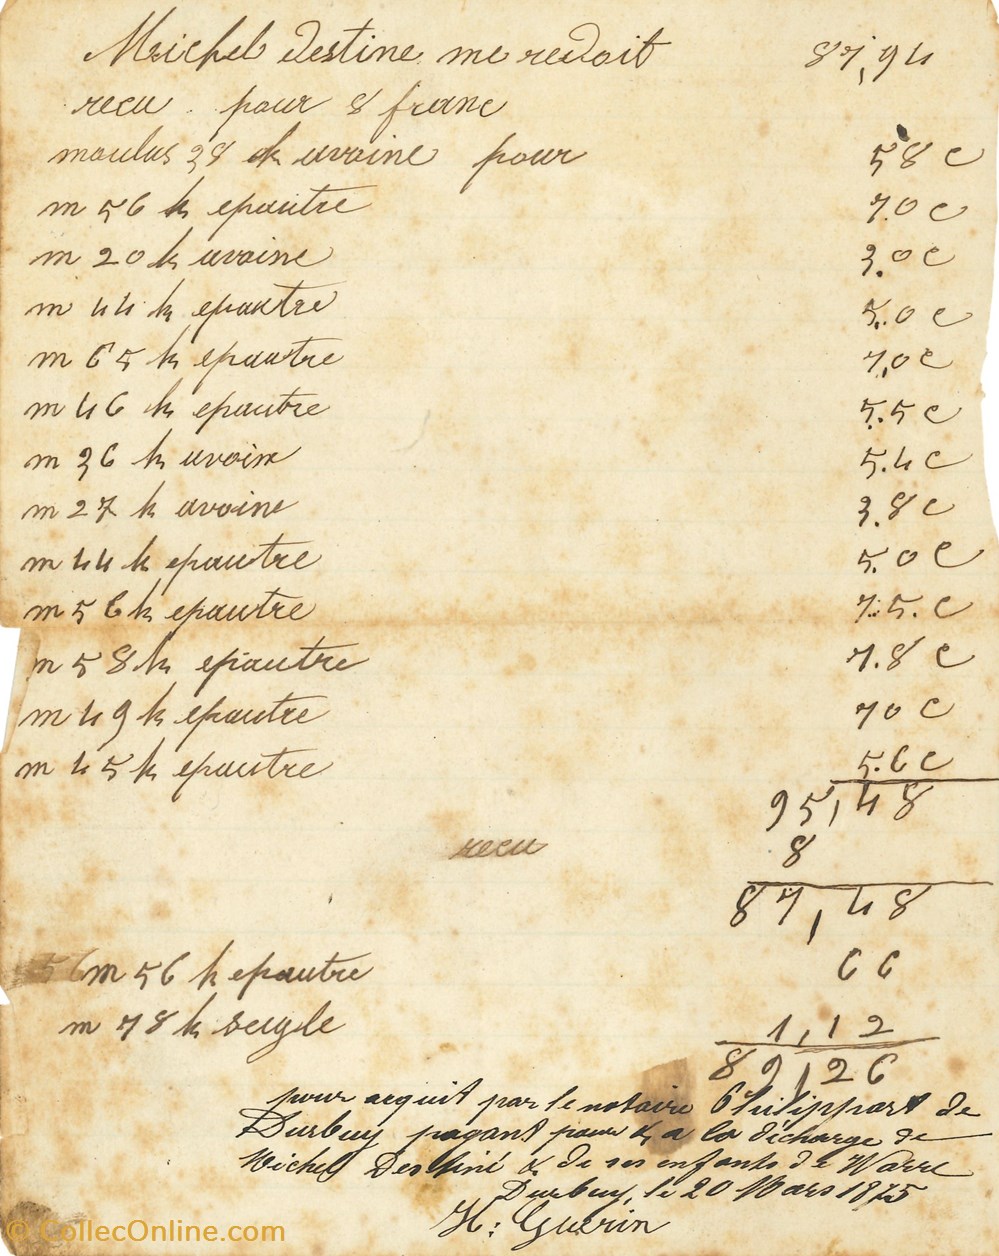 Michel Destine me redoit 87,94
recu . pour 8 franc
moulus 38 k avoine pour 58 c
m 56 k epautre 7.0 c
m 20 k avoine 3.0 c
m 44 k epautre 5.0 c
m 65 k epautre 7,0 c
m 46 k epautre 5.5 c
m 36 k avoine 5.4 c
m 27 k avoine 3.8 c
m 44 k epautre 5.0 c
m 56 k epautre 7.5. c
m 58 k epautre 7.8 c
m 49 k epautre 70 c
m 45 k epautre 5.6 c
95,48
recu 8
87,48
m 56 k epautre 66
m 78 k seigle 1,12
89,26
pour acquit par le notaire Philippart de
Durbuy payant pour & a la décharge de
Michel Destiné & de ses enfants de Warre
Durbuy, le 20 Mars 1875
H: Guérin
© CollecOnline.com